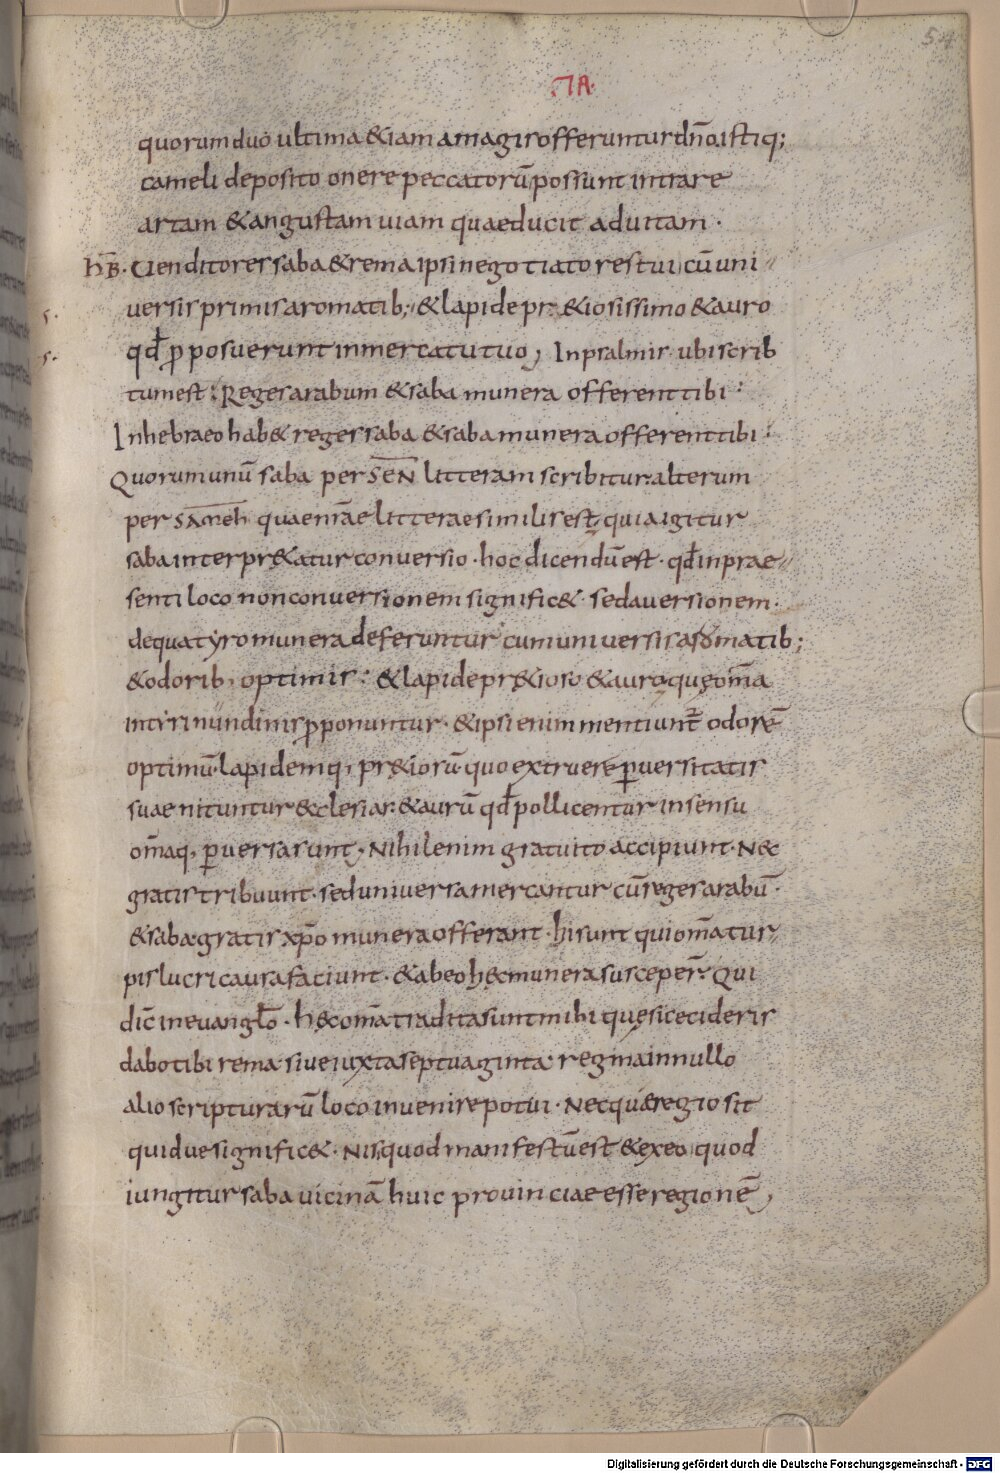 54
ΠΑ·
quorum duo ultima &iam a magis offeruntur dño. istiq;
cameli deposito onere peccatorū possunt intrare
artam & angustam uiam quae ducit ad uitam·
hB̄· Uenditores saba & rema ipsi negotiatores tui cū uni
uersis primis aromatib; & lapide pr&iosissimo & auro
qđ p̱posuerunt in mercatu tuo, In psalmis ubi scrib
tum est: Reges arabum & saba munera offerent tibi:
In hebraeo hab& reges saba & saba munera offerent tibi:
Quorum unū saba per SEN litteram scribitur. alterum
per sameh quae nr̄ae litterae similis est, quia igitur
saba interpr&atur conuersio· hoc dicendū est· qđ in prae
senti loco non conuersionem signific&· sed auersionem·
de qua tyro munera deferuntur cum uniuersis aromatib;
& odorib, optimis: & lapide pr&ioso & auro quę om̄a
in tyri nundinis p̱ponuntur· & ipsi enim mentiunt̄ odorē
optimū· lapidemq, pr&iosū quo extruere ꝑuersitatis
suae nituntur &clesias· & aurū qđ pollicentur in sensu
om̄aq, ꝑuersa sunt, Nihil enim gratuito accipiunt· Nec
gratis tribuunt· sed uniuersa mercantur cū reges arabū·
& saba gratis xp̄o munera offerant· hi sunt qui om̄a tur
pis lucri causa faciunt· & ab eo hęc munera susceper̄· Qui
dic̄ in euanglō· hęc om̄a tradita sunt mihi quę si cecideris
dabo tibi rema· siue iuxta septuaginta· regma in nullo
alio scripturarū loco inuenire potui· Nec quae regio sit
quidue signific&· Nisi quod manifestū est & ex eo quod
iungitur saba uicinā huic prouinciae esse regionē,
Digitalisierung gefördert durch die Deutsche Forschungsgemeinschaft - DFG